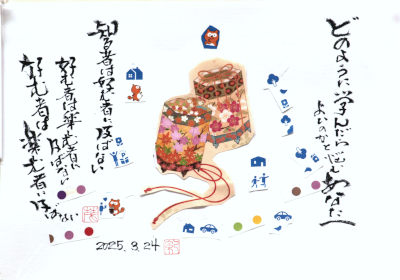 どのように学んだら
よいのかと悩む
あなたへ
知る者は好む者に及ばない
好む者は楽む者に
及ばない
好む者は
楽む者に及ばない
2025.3.24